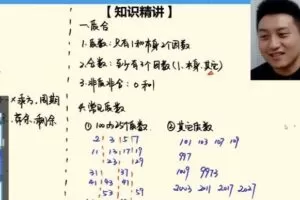 【知识精讲】
一.质合
1.质数：只有1和本身2个因数
2.合数：至少有3个因数(1、本身、其它)
3.非质非合：0和1
4.常见质数
①100内25个质数
2 3 5 7
11 13 17 19
23 29
31 37
41 43 47
53 59
②其它质数
101 103 107 109
997
1009 9973
2003 2011 2017 2027